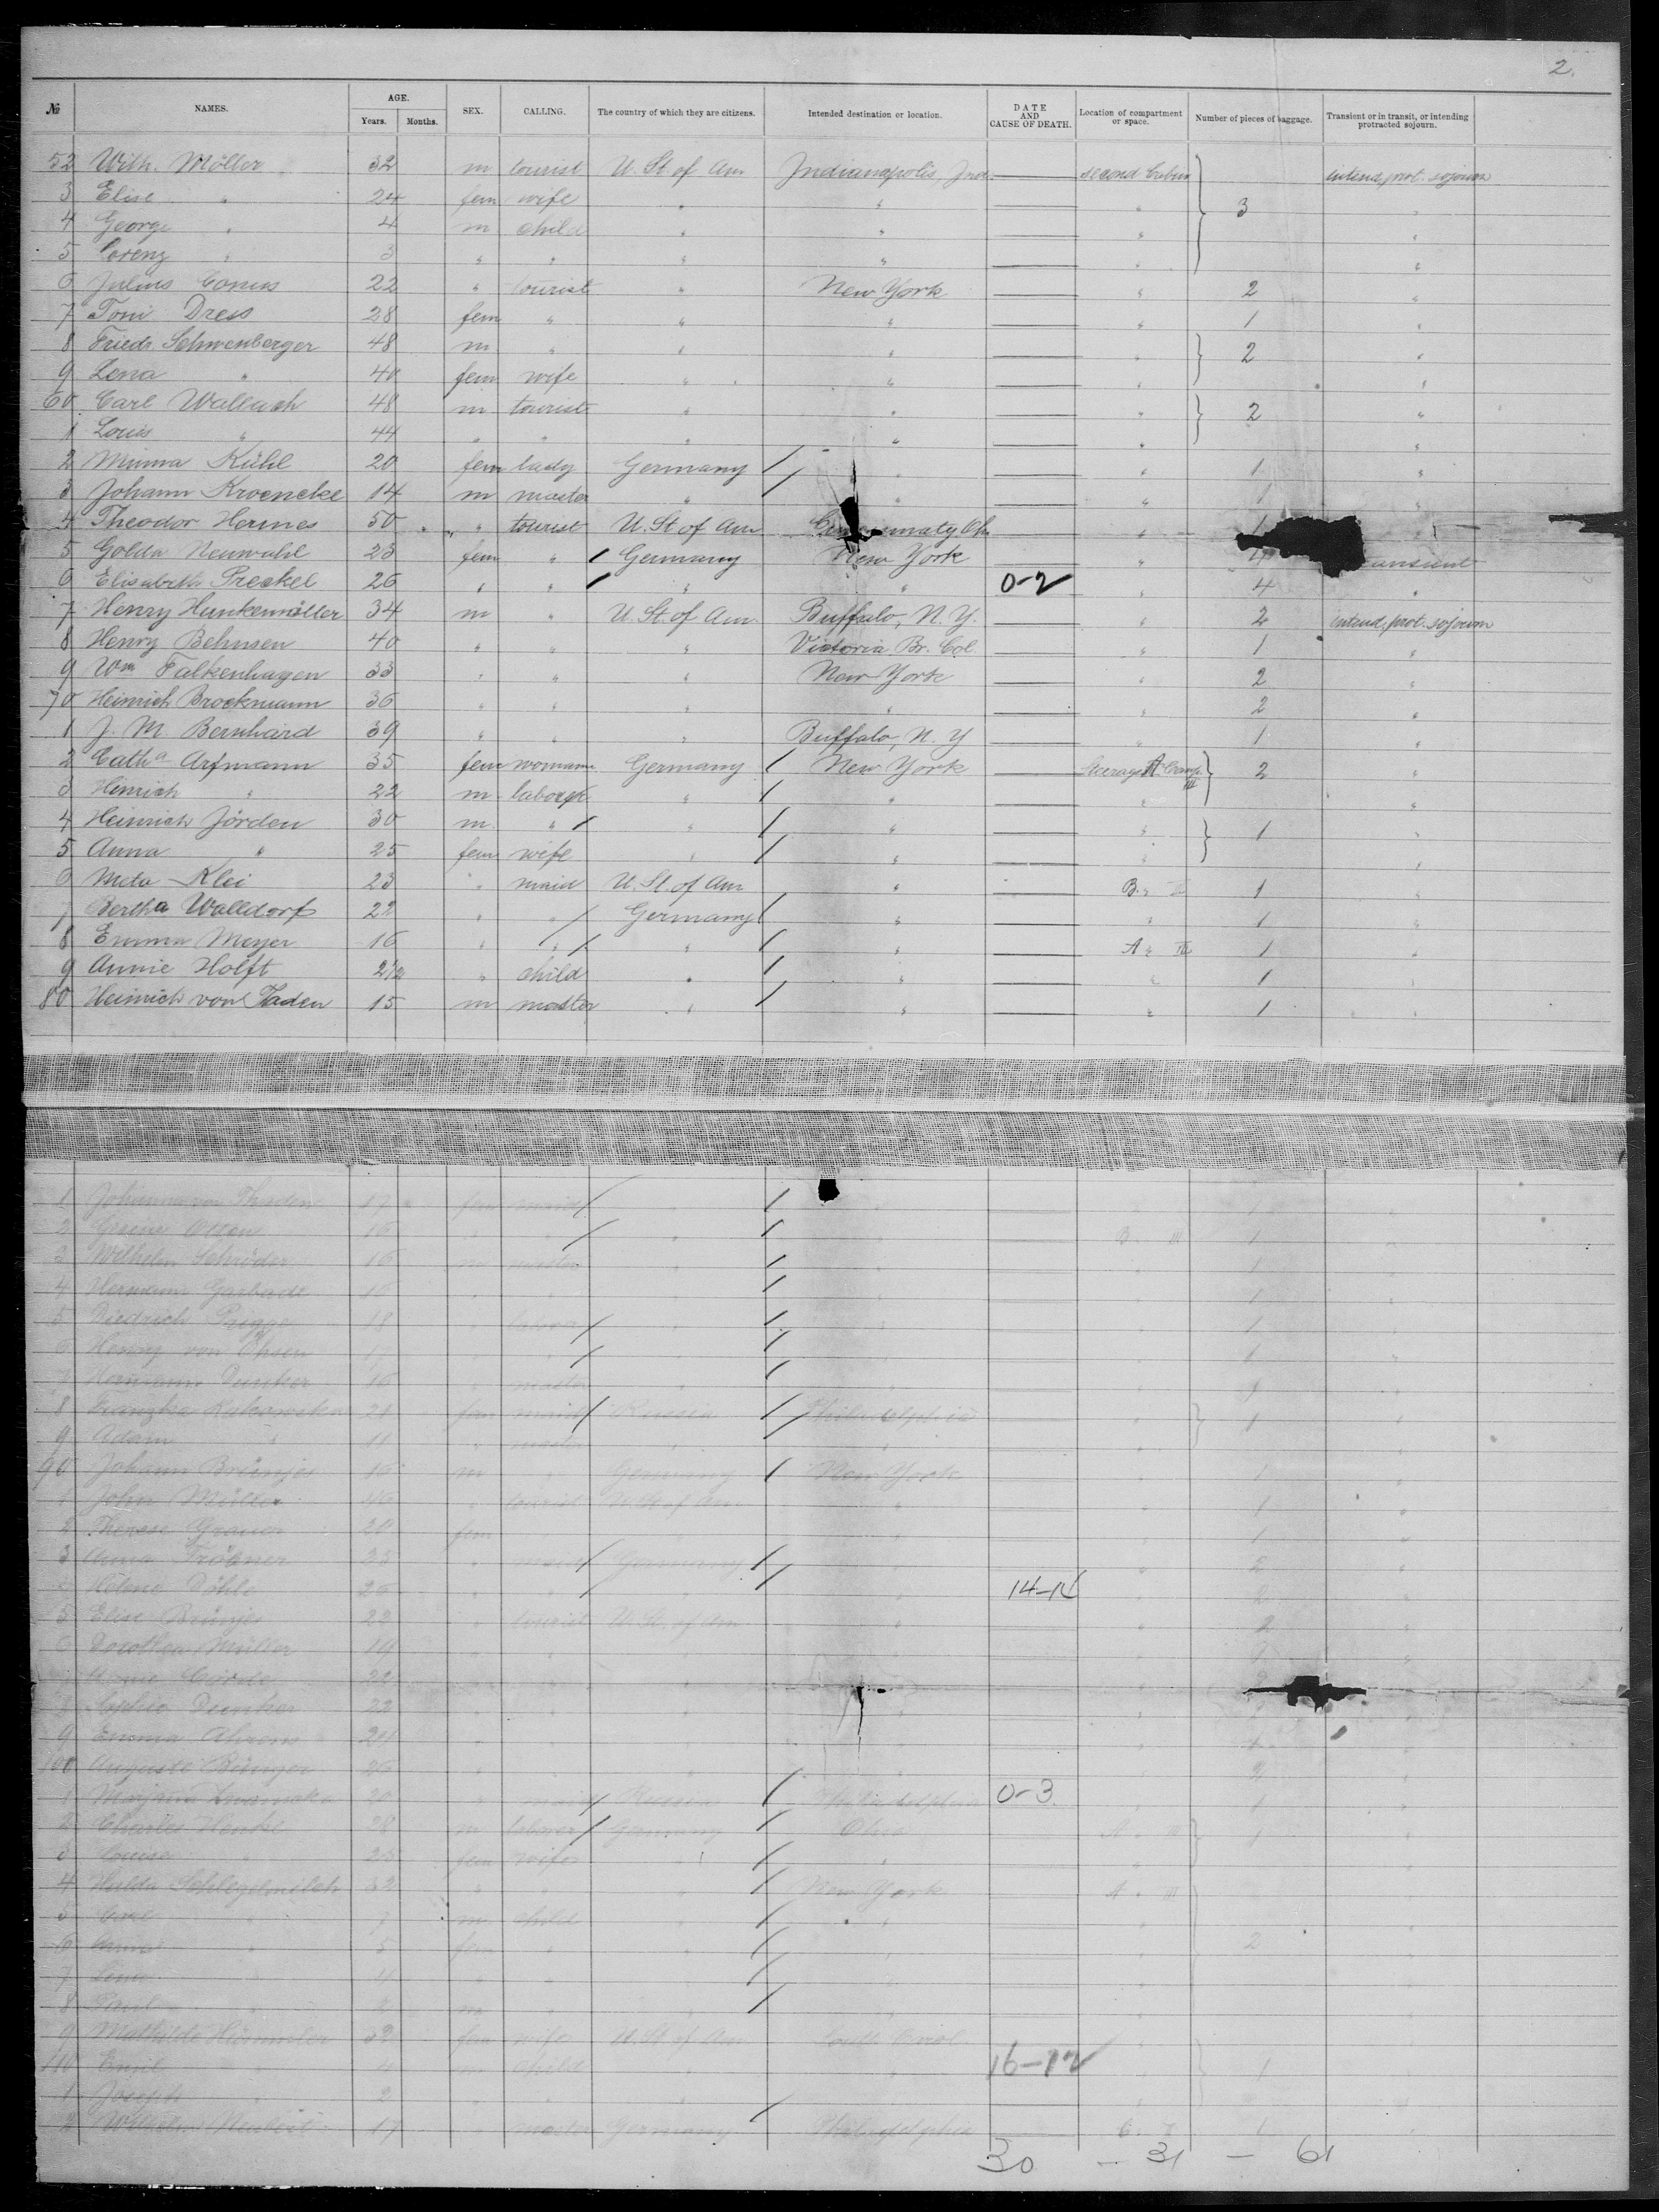 2.
№ NAMES. AGE. Years. Months. SEX. CALLING. The country of which they are citizens. Intended destination or location. DATE AND CAUSE OF DEATH. Location of compartment or space. Number of pieces of baggage. Transient or in transit, or intending protracted sojourn.
52 Wilh. Möller 32 m tourist U. St. of Am Indianapolis, Ind. second Cabin intend. prot. sojourn
3 Elise " 24 fem wife " " " 3 "
4 George " 4 m child " " " "
5 Lorenz " 3 " " " " " "
6 Julius Conus 22 " tourist " New York " 2 "
7 Toni Dress 28 fem " " " " 1 "
8 Friedr. Schwenberger 48 m " " " " 2 "
9 Lena " 40 fem wife " " " "
60 Carl Wallach 48 m tourist " " " 2 "
1 Louis " 44 " " " " " "
2 Minna Kühl 20 fem lady Germany " " 1 "
3 Johann Kroencke 14 m master " " " 1 "
4 Theodor Hermes 50 " tourist U. St of Am " 1
5 Golda Neuwahl 23 fem " Germany New York " 4
6 Elisabeth Preckel 26 " " " " 0-2 " 4 "
7 Henry Hunkemöller 34 m " U. St of Am. Buffalo, N. Y. " 2 intend. prot. sojourn
8 Henry Behnsen 40 " " " Victoria Br. Col. " 1 "
9 Wm Falkenhagen 33 " " " New York " 2 "
70 Heinrich Brockmann 36 " " " " " 2 "
1 J. M. Bernhard 39 " " " Buffalo, N. Y " 1 "
2 Catha Arfmann 35 fem womann Germany New York Steerage A Comp. III 2 "
3 Hinrich " 22 m. laborer " " " "
4 Heinrich Jörden 30 m. " " " " 1 "
5 Anna " 25 fem wife " " " "
6 Meta Klei 23 " maid U. St. of Am " B. " II 1 "
7 Bertha Walldorf 22 " " Germany " " 1 "
8 Emma Meyer 16 " " " " A " III 1 "
9 Annie Holft 2½ " child " " " 1 "
80 Heinrich von Thaden 15 m master " " " 1 "
1 Johanna von Thaden 17 fem maid " " " 1 "
2 Gesine 16 " " " " B. III 1 "
3 Wilhelm Schröder 16 m master " " " 1 "
4 Hermann Garbade 15 " " " " " 1 "
5 Diedrich Prigge 18 " laborer " " " 1 "
6 Henry von Öhsen 17 " " " " " 1 "
7 Hermann Dunker 16 " master " " " 1 "
8 21 fem maid Russia Philadelphia " 1 "
9 Adam " 11 " master " " " "
90 Johann Brünjes 15 m " Germany New York " 1 "
1 John Müller tourist U. St. of Am. " " 1 "
2 Therese Grauer 20 fem " " " " 1 "
3 Anna 23 " maid Germany " " 2 "
4 Helene Döhle 26 " " " " 14-14 " 2 "
5 Elise Brünjes 22 " tourist U. St. of Am. " " 2 "
6 Dorothea Müller 19 " " " " " "
22 " " " "
8 Sophie Dunker 22 " " " " " "
9 Emma Ahrens 24 " " " " " 1 "
100 Auguste Bünger 26 " " " " " 2 "
1 20 " maid Russia Philadelphia 0-3 " 1 "
2 Charles Henke 28 m laborer Germany Ohio A. III 1 "
3 Louise " 25 fem wife " " " "
4 Hulda Schlegelmilch 32 " " " New York A. III
5 " 7 m child " " " "
6 " 5 fem " " " " 2 "
7 " 4 " " " " " "
8 " m " " " " "
9 Mathilde 32 fem wife U. St of Am South Carol. " "
110 Emil " 4 m child " " 16-12 " 1 "
1 Joseph " 2 " " " " " "
2 Wilhelm 17 " master Germany Philadelphia C. I 1 "
30 - 31 - 61